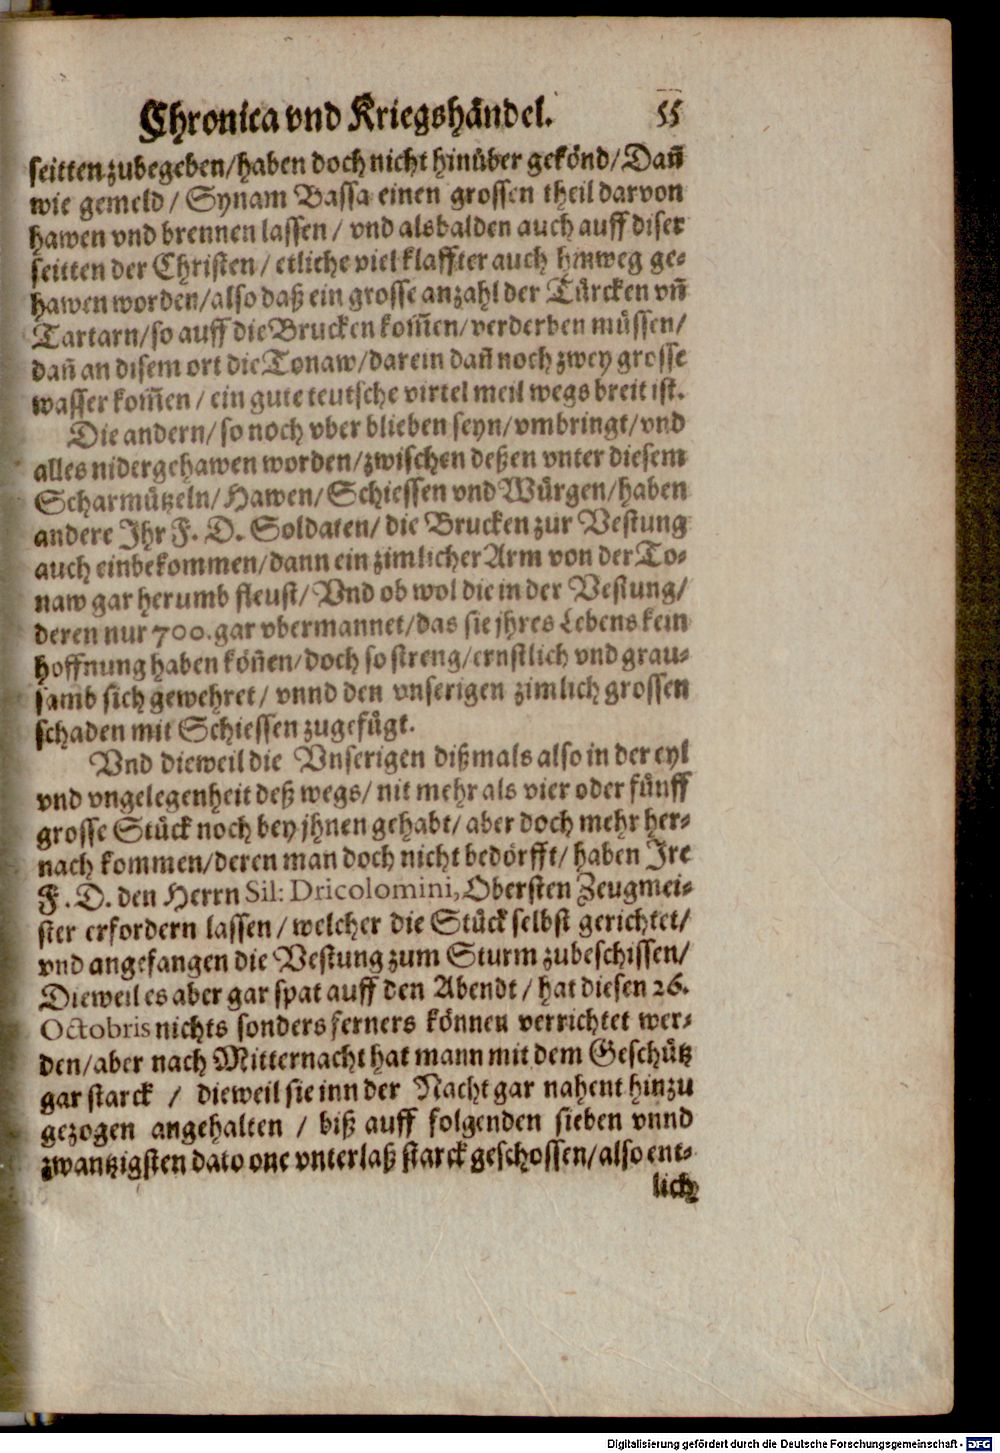 Chronica vnd Kriegshändel. 55
seitten zubegeben/ haben doch nicht hinüber gekönd/ Dañ
wie gemeld/ Synam Bassa einen grossen theil darvon
hawen vnd brennen lassen/ vnd alsbalden auch auff diser
seitten der Christen/ etliche viel klaffter auch hinweg ge-
hawen worden/ also daß ein grosse anzahl der Türcken vñ
Tartarn/ so auff die Brucken kom̃en/ verderben müssen/
dañ an disem ort die Tonaw/ darein dañ noch zwey grosse
wasser kom̃en/ ein gute teutsche virtel meil wegs breit ist.
Die andern/ so noch vber blieben seyn/ vmbringt/ vnd
alles nidergehawen worden/ zwischen deßen vnter diesem
Scharmützeln/ Hawen/ Schiessen vnd Würgen/ haben
andere Ihr F. D. Soldaten/ die Brucken zur Vestung
auch einbekommen/ dann ein zimlicher Arm von der To-
naw gar herumb fleust/ Vnd ob wol die in der Vestung/
deren nur 700. gar vbermannet/ das sie jhres Lebens kein
hoffnung haben köñen/ doch so streng/ ernstlich vnd grau-
samb sich gewehret/ vnnd den vnserigen zimlich grossen
schaden mit Schiessen zugefügt.
Vnd dieweil die Vnserigen dißmals also in der eyl
vnd vngelegenheit deß wegs/ nit mehr als vier oder fünff
grosse Stück noch bey jhnen gehabt/ aber doch mehr her-
nach kommen/ deren man doch nicht bedörfft/ haben Ire
F. D. den Herrn Sil: Dricolomini, Obersten Zeugmei-
ster erfordern lassen/ welcher die Stück selbst gerichtet/
vnd angefangen die Vestung zum Sturm zubeschissen/
Dieweil es aber gar spat auff den Abendt/ hat diesen 26.
Octobris nichts sonders ferners können verrichtet wer-
den/ aber nach Mitternacht hat mann mit dem Geschütz
gar starck / dieweil sie inn der Nacht gar nahent hinzu
gezogen angehalten / biß auff folgenden sieben vnnd
zwantzigsten dato one vnterlaß starck geschossen/ also ent-
lich
Digitalisierung gefördert durch die Deutsche Forschungsgemeinschaft - DFG